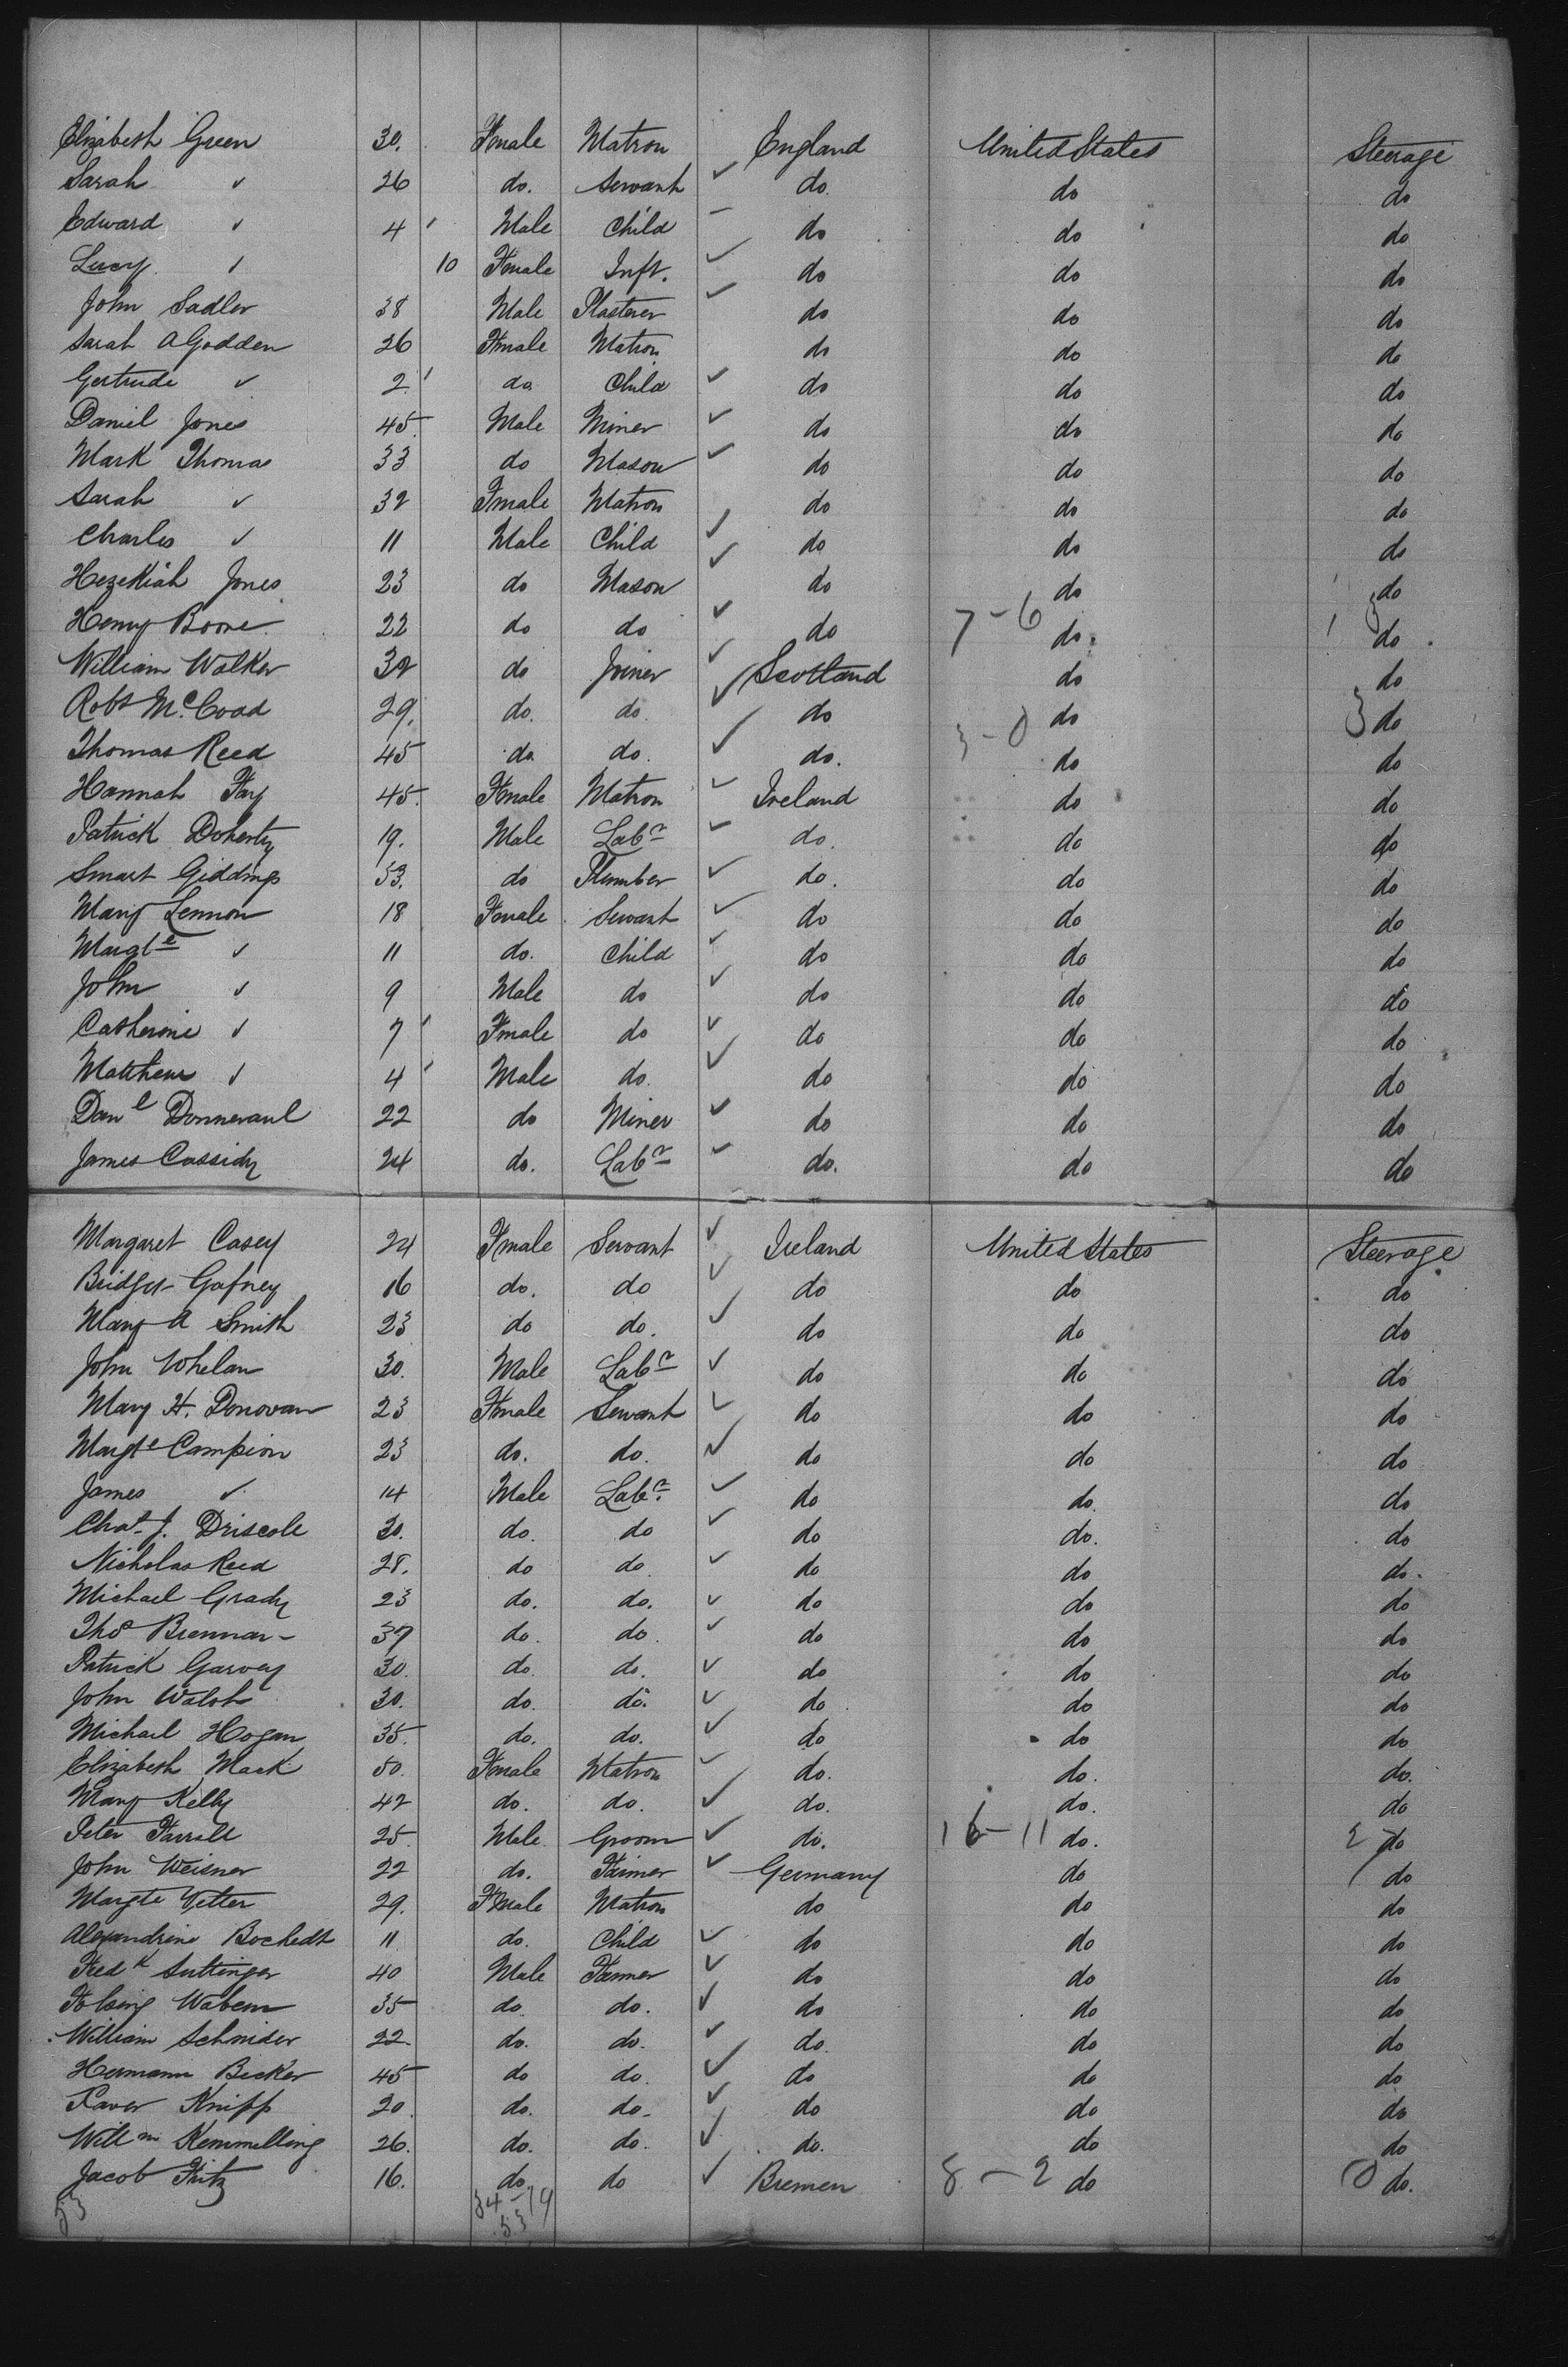 Elizabeth Green 30. Female Matron England United States Steerage
Sarah ✓ 26 do. Servant ✓ do. do do
Edward ✓ 4 ' Male Child – do do do
Lucy ✓ 10 Female Inft. ✓ do do do
John Sadler 38 Male Plasterer ✓ do do do
Sarah A Godden 26 Female Matron do do do
Gertrude ✓ 2 ' do Child ✓ do do do
Daniel Jones 45. Male Miner ✓ do do do
Mark Thomas 33 do Mason ✓ do do do
Sarah ✓ 32 Female Matron do do do
Charles ✓ 11 Male Child ✓ do do do
Hezekiah Jones 23 do Mason ✓ do do do
Henry Boone 22 do do ✓ do 7-6 do do
William Walker 32 do Joiner ✓ Scotland do do
Robt McCoad 29. do. do. ✓ do do 3 do
Thomas Reed 45 do do. ✓ do. 3-0 do do
Hannah Fay 45. Female Matron ✓ Ireland do do
Patrick Doherty 19. Male Labr ✓ do. do do
Smart Giddings 53. do Plumber ✓ do. do do
Mary Lennon 18 Female Servant ✓ do do do
Margte ✓ 11 do. Child ✓ do do do
John ✓ 9 Male do ✓ do do do
Catherine ✓ 7 ' Female do ✓ do do do
Matthew ✓ 4 ' Male do. ✓ do do do
Danl 22 do Miner ✓ do do do
James Cassidy 24 do. Labr ✓ do. do do
Margaret Casey 24 Female Servant ✓ Ireland United States Steerage
Bridget Gafney 16 do. do ✓ do do do
Mary A Smith 23 do do. ✓ do do do
John Whelan 30. Male Labr ✓ do do do
Mary H. Donovan 23 Female Servant ✓ do do do
Margte Campion 23 do. do. ✓ do do do
James ✓ 14 Male Labr. ✓ do do. do
Chas. J. Driscole 30. do. do ✓ do do. do
Nicholas Reed 28. do do. ✓ do do do.
Michael Grady 23 do. do. ✓ do do do
Thos Brennan 37 do. do. ✓ do do do
Patrick Garvey 30. do. do. ✓ do do do
John Walsh 30. do. do. ✓ do do do
Michael Hogan 35. do. do. ✓ do do do
Elizabeth Mack 50. Female Matron ✓ do. do. do.
Mary Kelly 42 do. do. ✓ do. do. do
Peter Farrell 25. Male Groom ✓ do. 16-11 do. 2 do
John Weisner 22 do. Farmer ✓ Germany do do
Margte Vetter 29. Female Matron do do do
Alexandrine Bochedt 11 do. Child ✓ do do do
Fredk Suttinger 40 Male Farmer ✓ do do do
35 do do. ✓ do do do
William Schnider 22. do. do. ✓ do. do do
Hermann Becker 45 do do. ✓ do do do
Xaver Knipp 20. do. do. ✓ do do do
Willm Kemmelling 26. do. do. ✓ do. do do
Jacob Fritz 16. do. do ✓ Bremen 8-2 do 0 do.
53 34-19
53